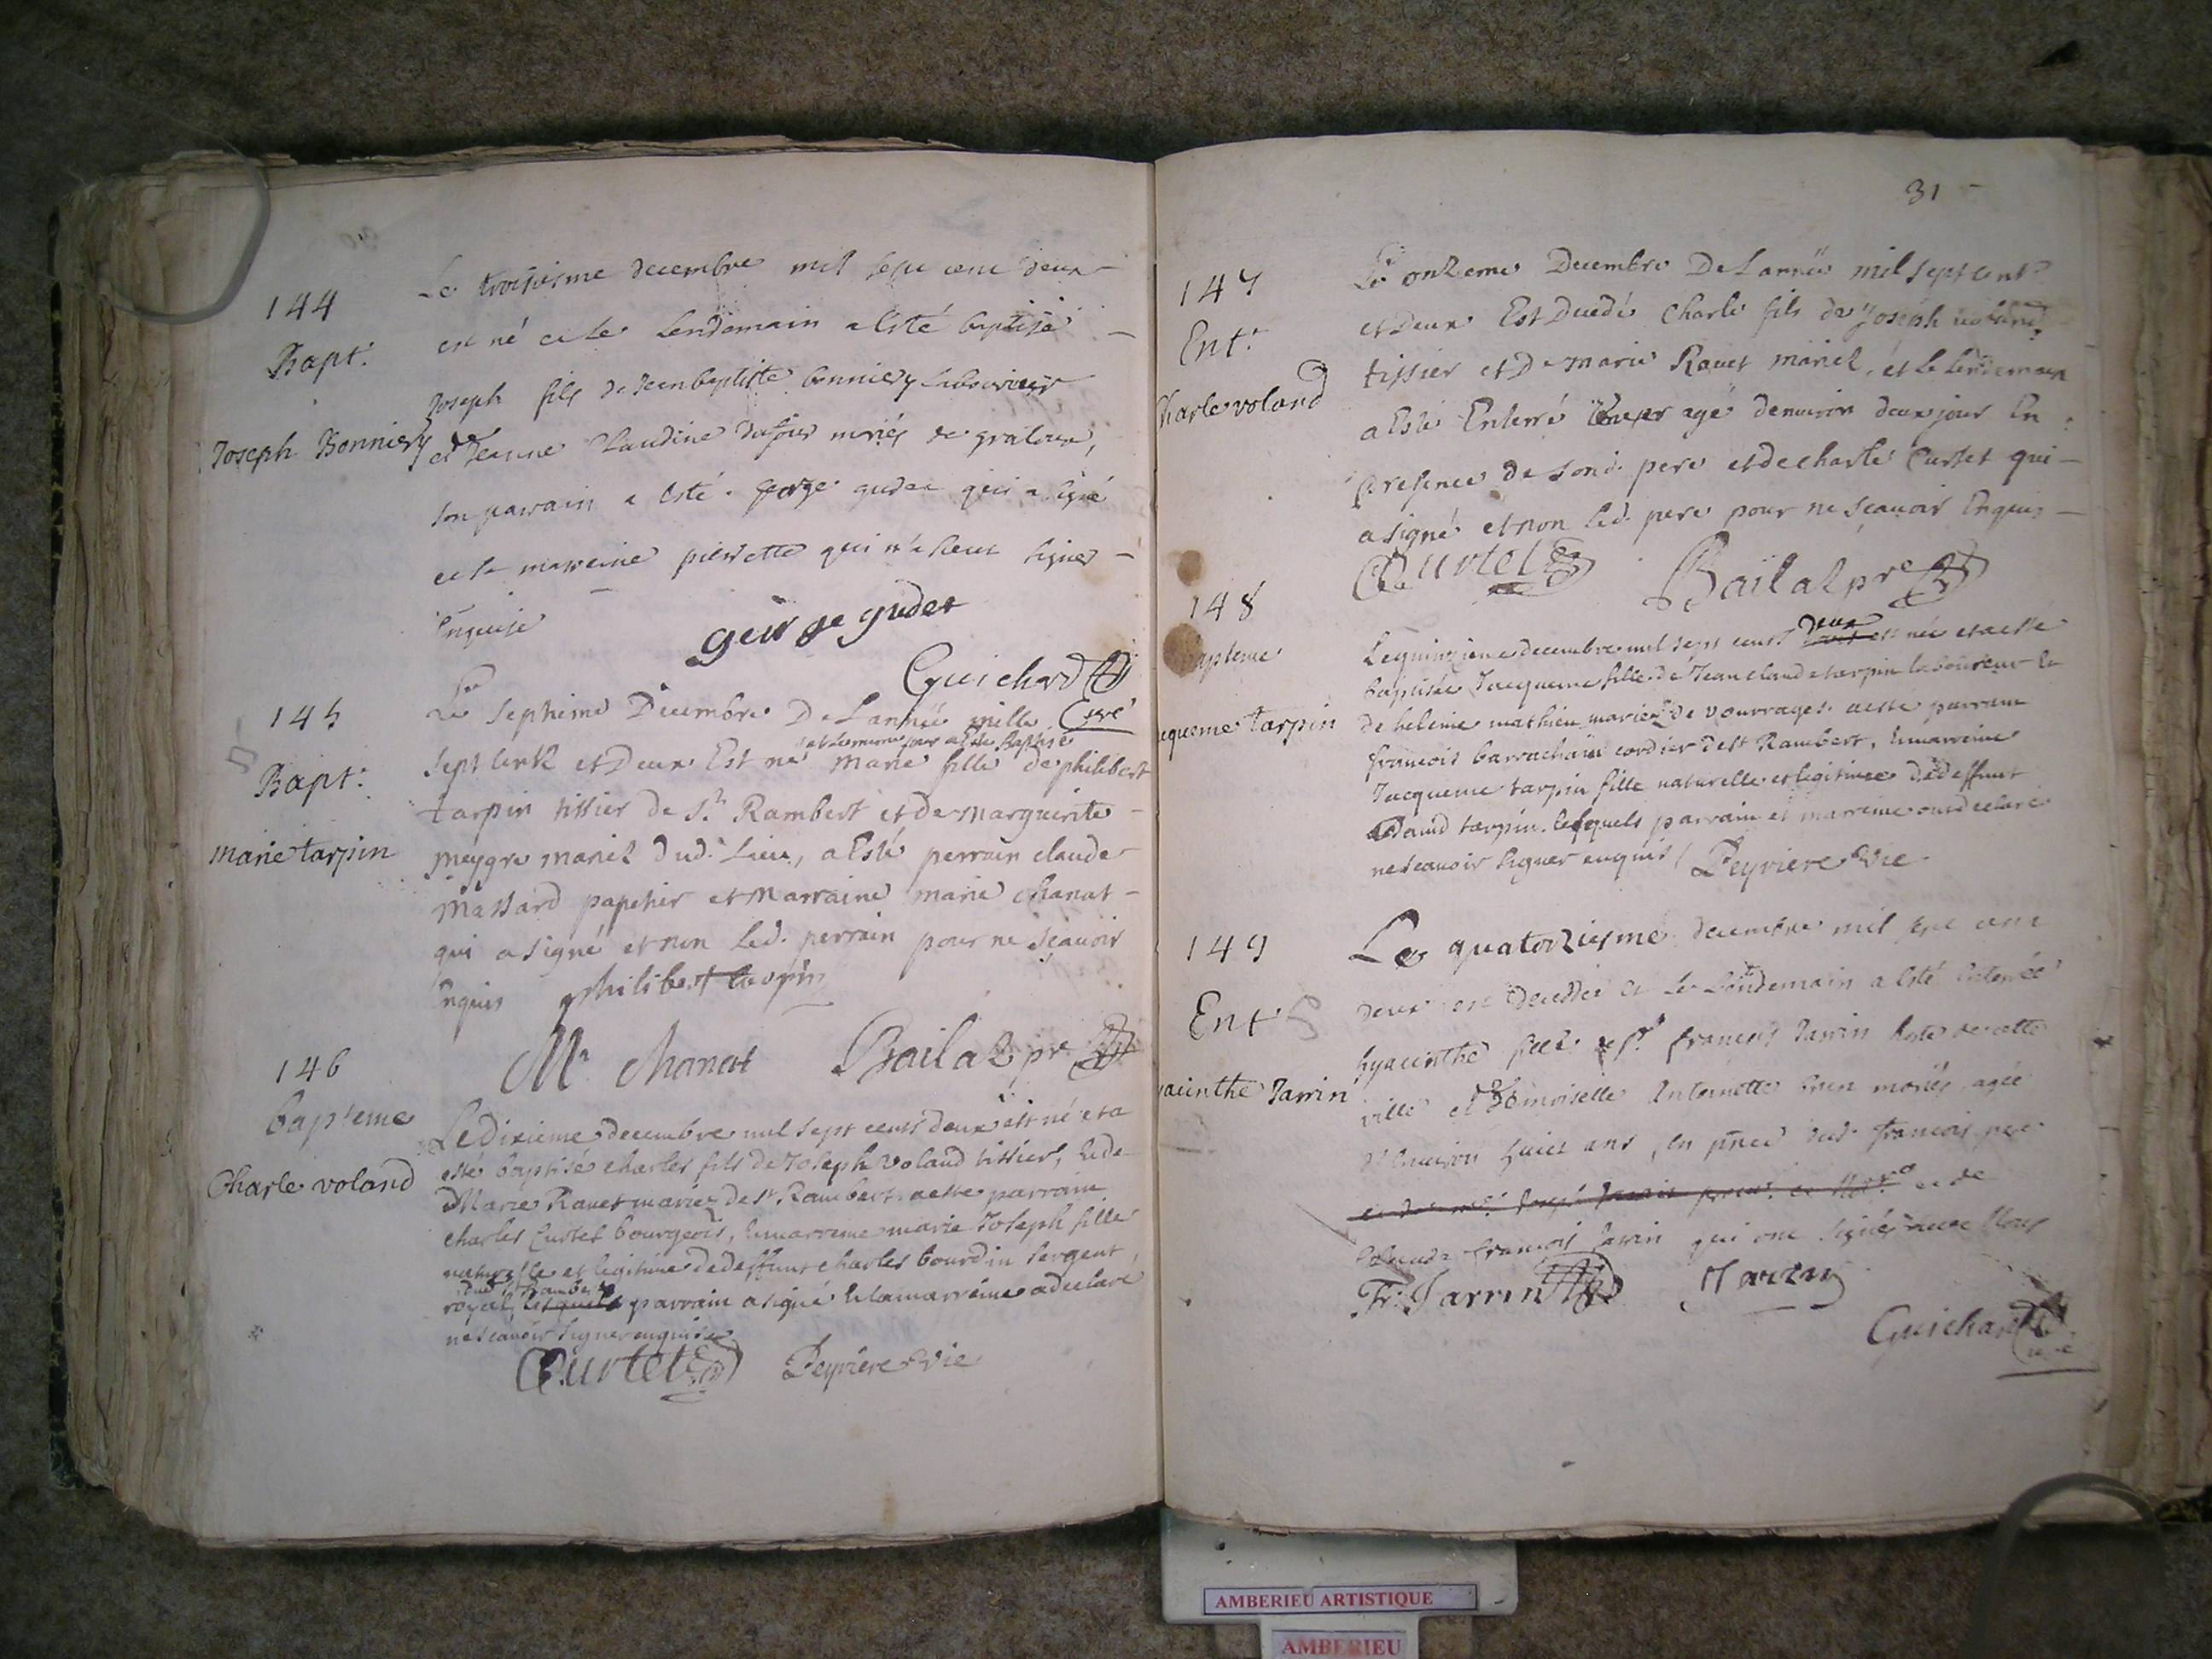 144
Bapt.
Joseph Bonniery
Le troisiesme decembre mil sept cent deux
est né et le lendemain a esté baptisé
Joseph fils de Jean baptiste bonniery laboureur
et Jeanne Claudine dufour mariés de
son parrain a esté george gudet qui a signé
et la marreine pierrette qui n'a sceu signer
enquise
george gudet
Guichard
Curé
145
Bapt.
marie tarpin
Le septieme Decembre De L'année mille
et le mesme jour a esté Baptisé
sept centz et Deux Est né marie fille de philibert
tarpin tissier de St Rambert et de Marguerite
meygre mariez dud. Lieu, a Esté perrain claude
Massard papetier et Marraine marie Chanat
qui a signé et non led. perrain pour ne sçavoir
Enquis philibert tarpin
M. Chanat Bailat pre
146
bapteme
Charle voland
Le dixieme decembre mil sept cents deux est né et a
esté baptisé charles fils de Joseph Voland tissier, et de
Marie Ravet mariez de st Rambert. a esté parrain
charles Curtet bourgeois, et marreine marie Joseph fille
naturelle et legitime de deffunt charles bourdin sergent
dud. st Rambert
royal, lesquels parrain a signé et la marreine a declaré
ne scauoir signer enquise
Curtet Peyriere Vic
31
147
Ent.
Charle voland
Le onzeme Decembre De L'année mil sept cent
et Deux Est Decedé Charle fils de Joseph voland
tissier et De marie Ravet mariez, et Le lendemain
a Esté Enterré agé denuiron deux jour En
presence de son d. pere et de charle Curtet qui
a signé et non led. pere pour ne sçauoir Enquis
Curtet Bailat pre
148
apteme
queme tarpin
deux
Le quinzieme decembre mil sept cents est née et a esté
baptisée Jacqueme fille de Jean claude tarpin laboureur et
de helenie mathieu mariez de vourrages. a esté parrain
francois barrachain cordier de st Rambert, et marreine
Jacqueme tarpin fille naturelle et legitime de deffunt
claud tarpin. lesquels parrain et marreine ont declaré
ne scauoir signer enquis Peyriere Vic
149
Ent
acinthe Jarrin
Le quatorziesme decembre mil sept cent
deux est decedée et le Lendemain a esté enterrée
hyacinthe fille de sr. francois Jarrin hoste de cette
ville et Demoiselle Antoinette mariés, agée
d'enuiron huict ans, en pnce dud. francois pere
et de
francois Jarrin qui ont signés avec Nous
Fr. Jarrin Jarrin
Guichard
Curé
AMBERIEU ARTISTIQUE
AMBERIEU